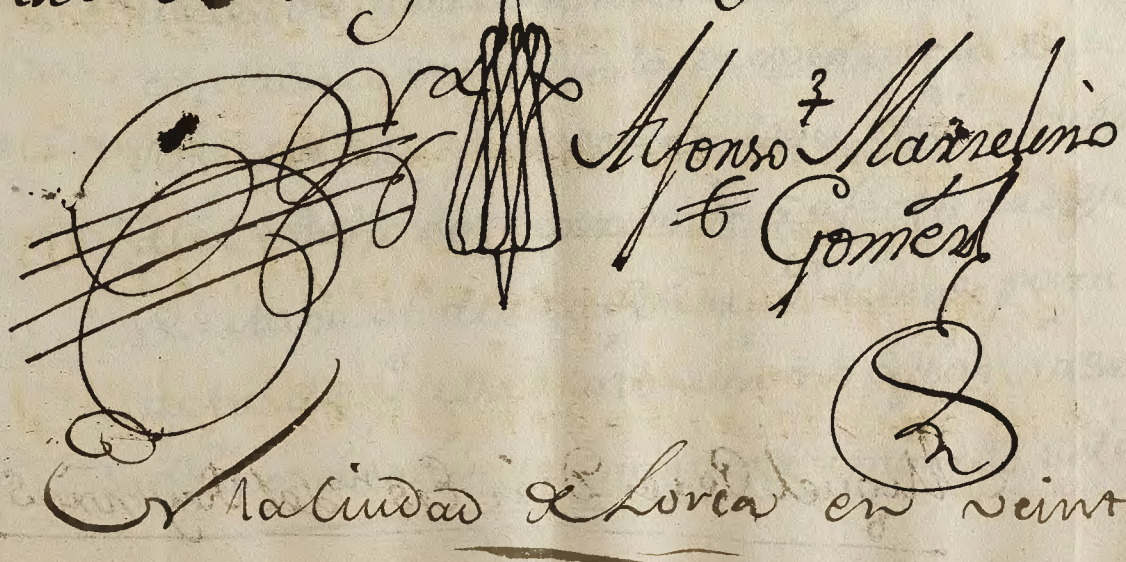 Alfonso Marzelino
Gomez
En la Ciudad de Lorca en veint